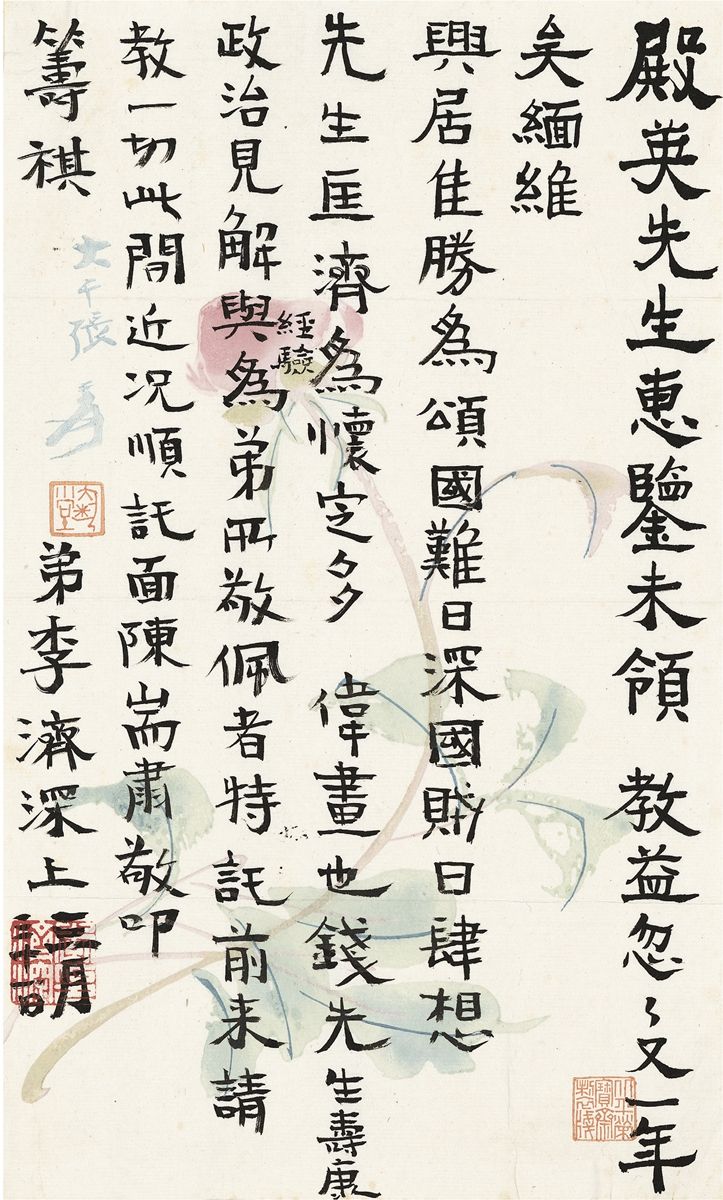 殿英先生惠鑒未領 教益忽〻又一年
矣緬維
興居佳勝爲頌國難日深國賊日肆想
先生匡濟爲懷定多 偉畫也錢先生壽康
政治見解與經驗爲弟所敬佩者特託前来請
教一切此間近况順託面陳耑肅敬叩
籌祺
弟李濟深上 二月
大千張爰